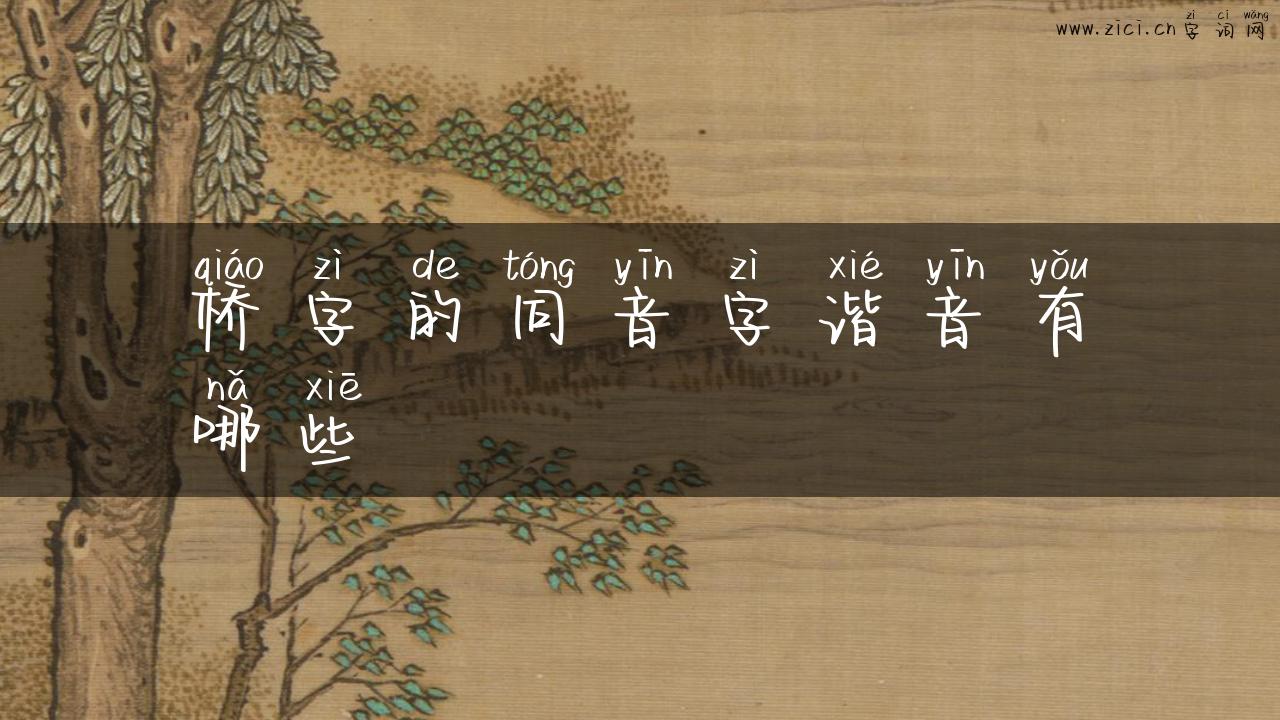 zì cí wǎng
www.zici.cn 字词网
qiáo zì de tóng yīn zì xié yīn yǒu
桥字的同音字谐音有
nǎ xiē
哪些